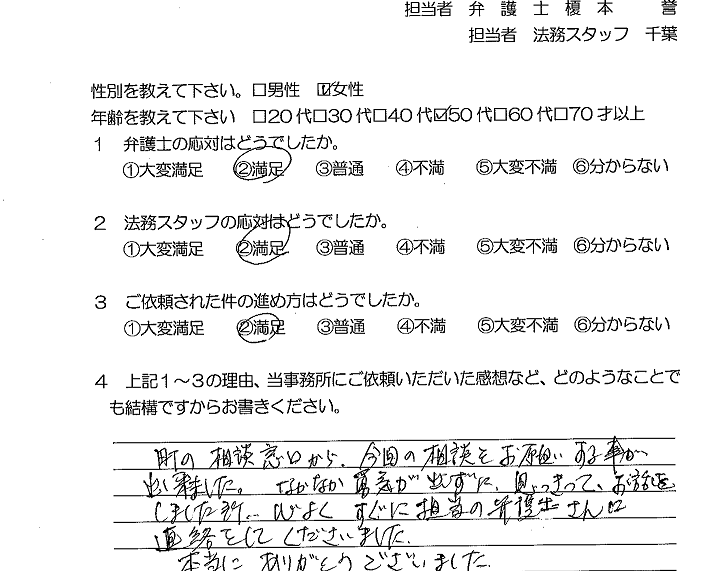 担当者 弁護士榎本 誉
担当者 法務スタッフ 千葉
性別を教えて下さい。□男性 ☑女性
年齢を教えて下さい □20代□30代□40代☑50代□60代□70才以上
1 弁護士の応対はどうでしたか。
①大変満足 ②満足 ③普通 ④不満 ⑤大変不満 ⑥分からない
2 法務スタッフの応対はどうでしたか。
①大変満足 ②満足 ③普通 ④不満 ⑤大変不満 ⑥分からない
3 ご依頼された件の進め方はどうでしたか。
①大変満足 ②満足 ③普通 ④不満 ⑤大変不満 ⑥分からない
4 上記1～3の理由、当事務所にご依頼いただいた感想など、どのようなことで
も結構ですからお書きください。
町の相談窓口から、今回の相談をお願いする事が
出来ました。なかなか勇気が出ずに、思いきって、お話を
しました所… 心よく すぐに担当の弁護士さんに
連絡をしてくださいました。
本当に ありがとうございました。